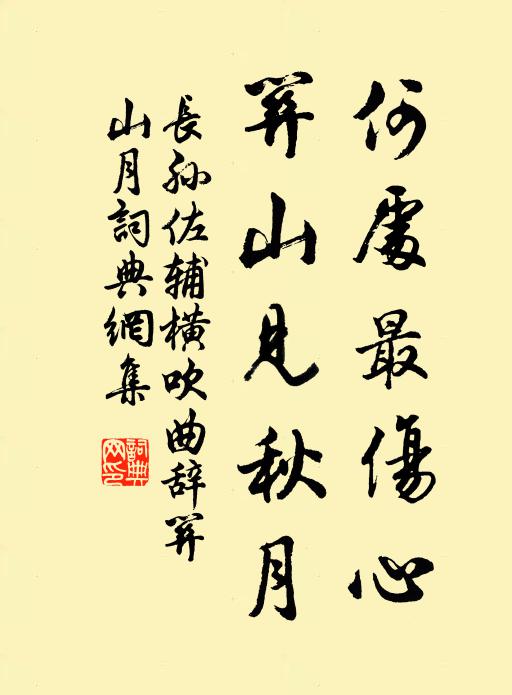 何處最傷心
關山見秋月
長孫佐辅橫吹曲辞關
山月詞典網集
詞典网印